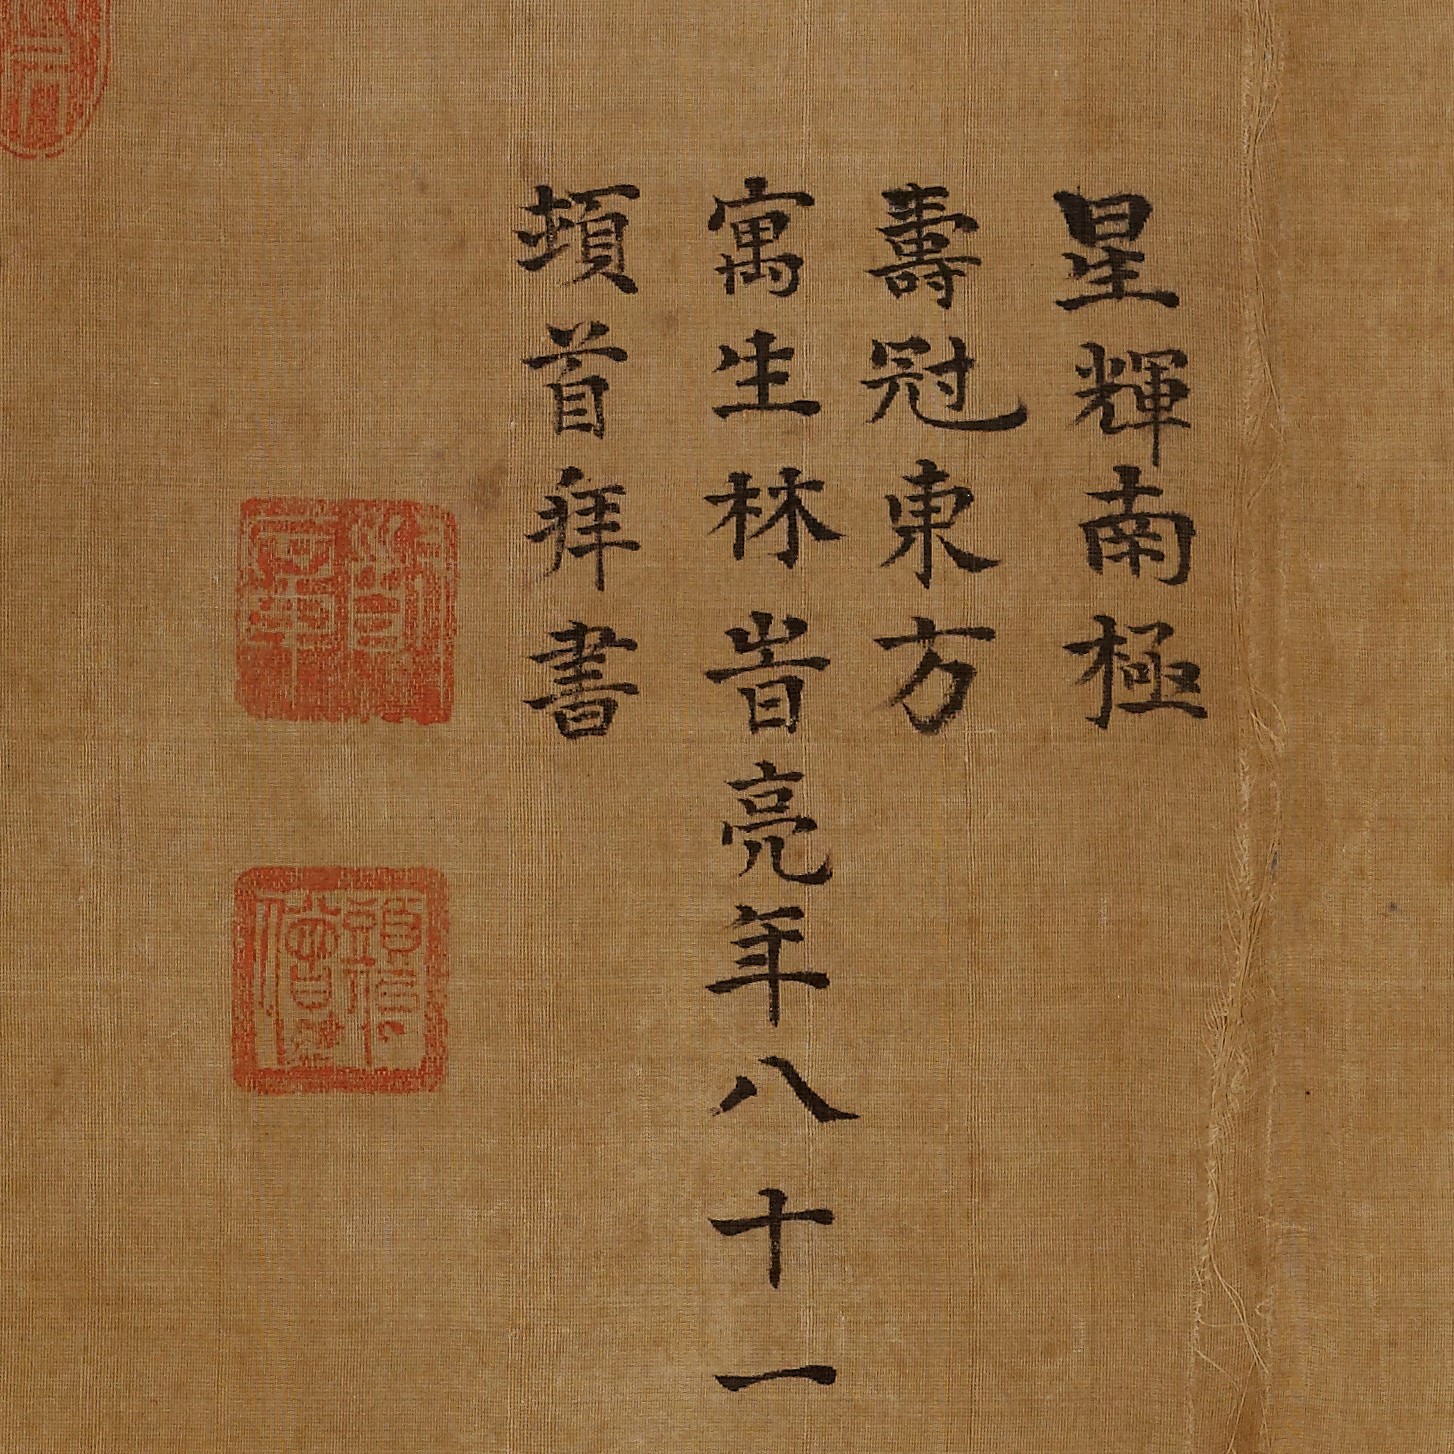 星輝南極
壽冠東方
寓生林旹亮年八十一
頓首拜書